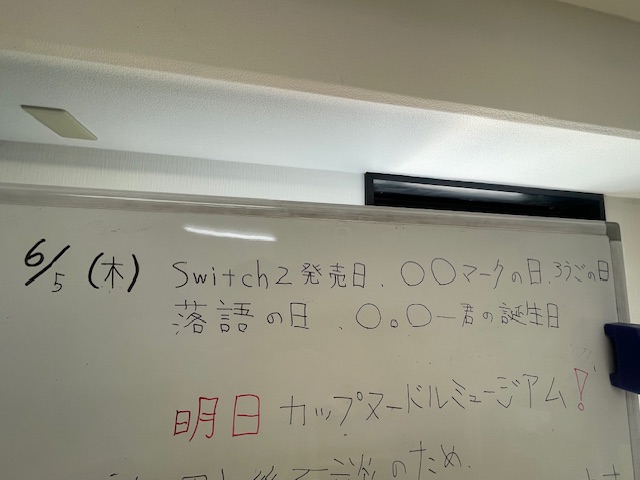 6/5 (木) Switch2発売日、〇〇マークの日、ろうごの日
落語の日、〇。〇一君の誕生日
明日 カップヌードルミュージアム!
のため、